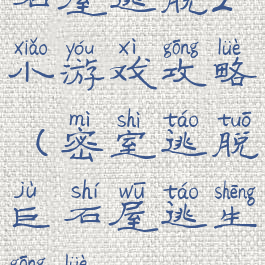 石屋逃脱2
xiǎo yóu xì gōng lüè
小游戏攻略
mì shì táo tuō
(密室逃脱
jù shí wū táo shēng
巨石屋逃生
gōng lüè